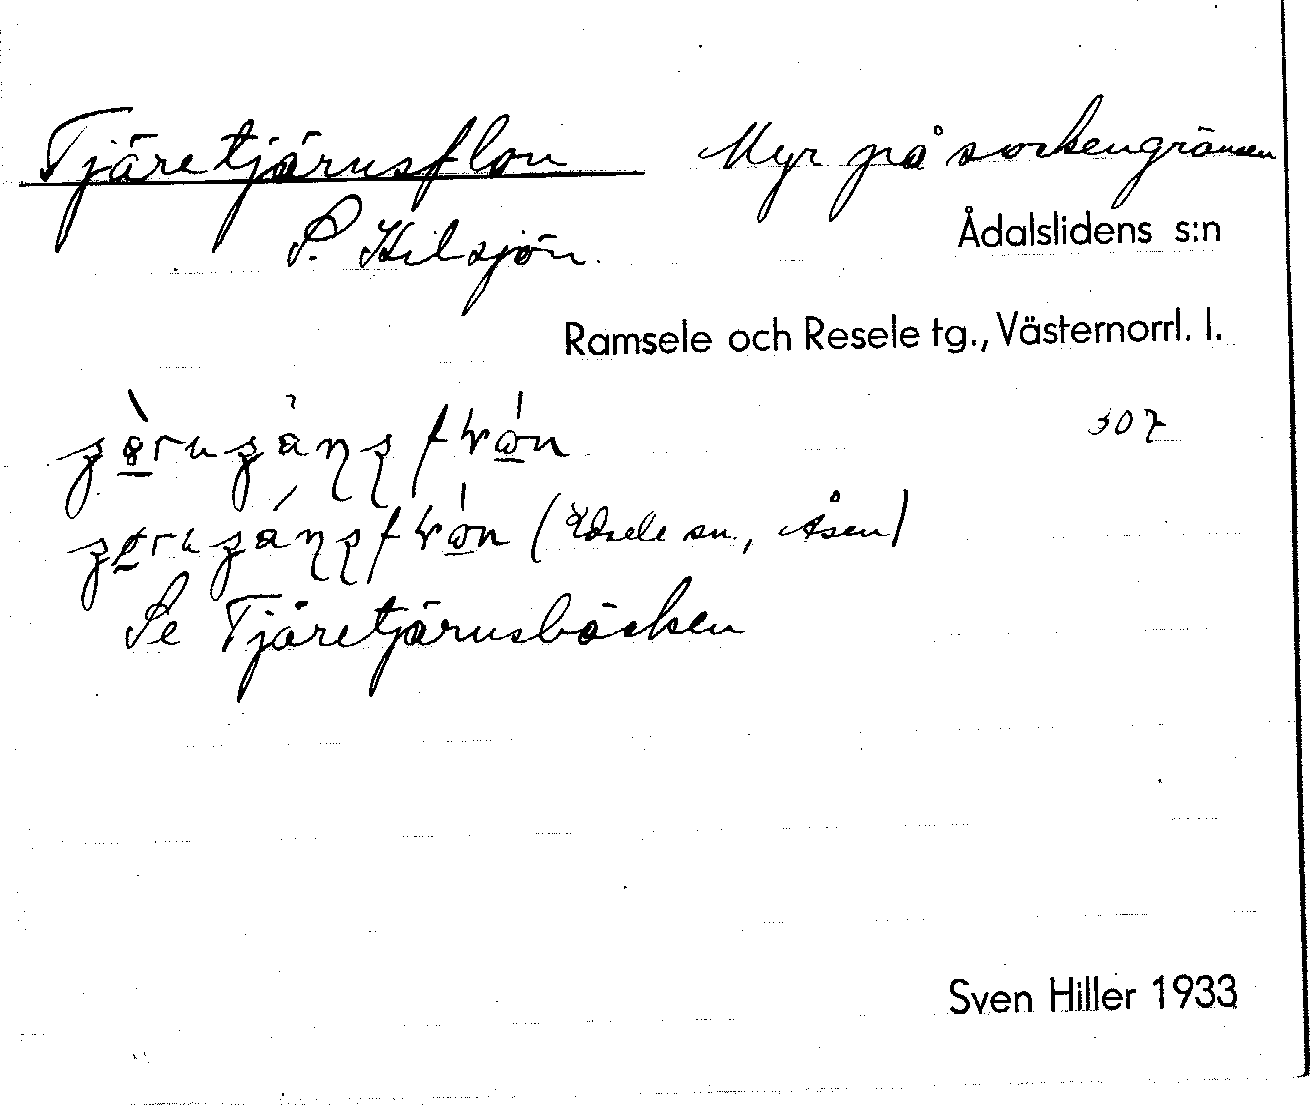 Tjäretjärnsflon Myr på sockengränsen
S. Kilsjön. Ådalslidens s:n
Ramsele och Resele tg., Västernorrl. l.
307
(Edsele sn., Åsen)
Se Tjäretjärnsbäcken
Sven Hiller 1933